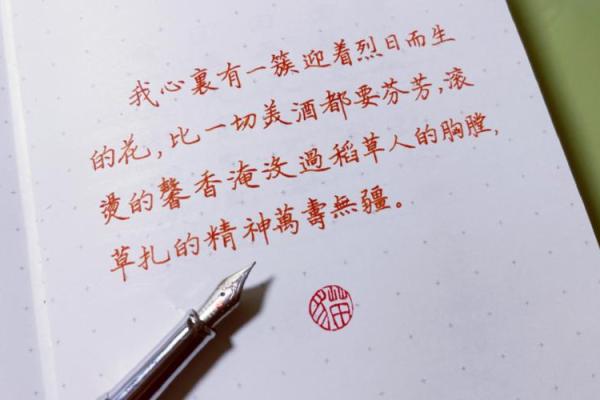 我心裏有一簇迎着烈日而生
的花，比一切美酒都要芬芳，滚
燙的馨香淹没過稻草人的胸膛，
草扎的精神萬壽無疆。
猫